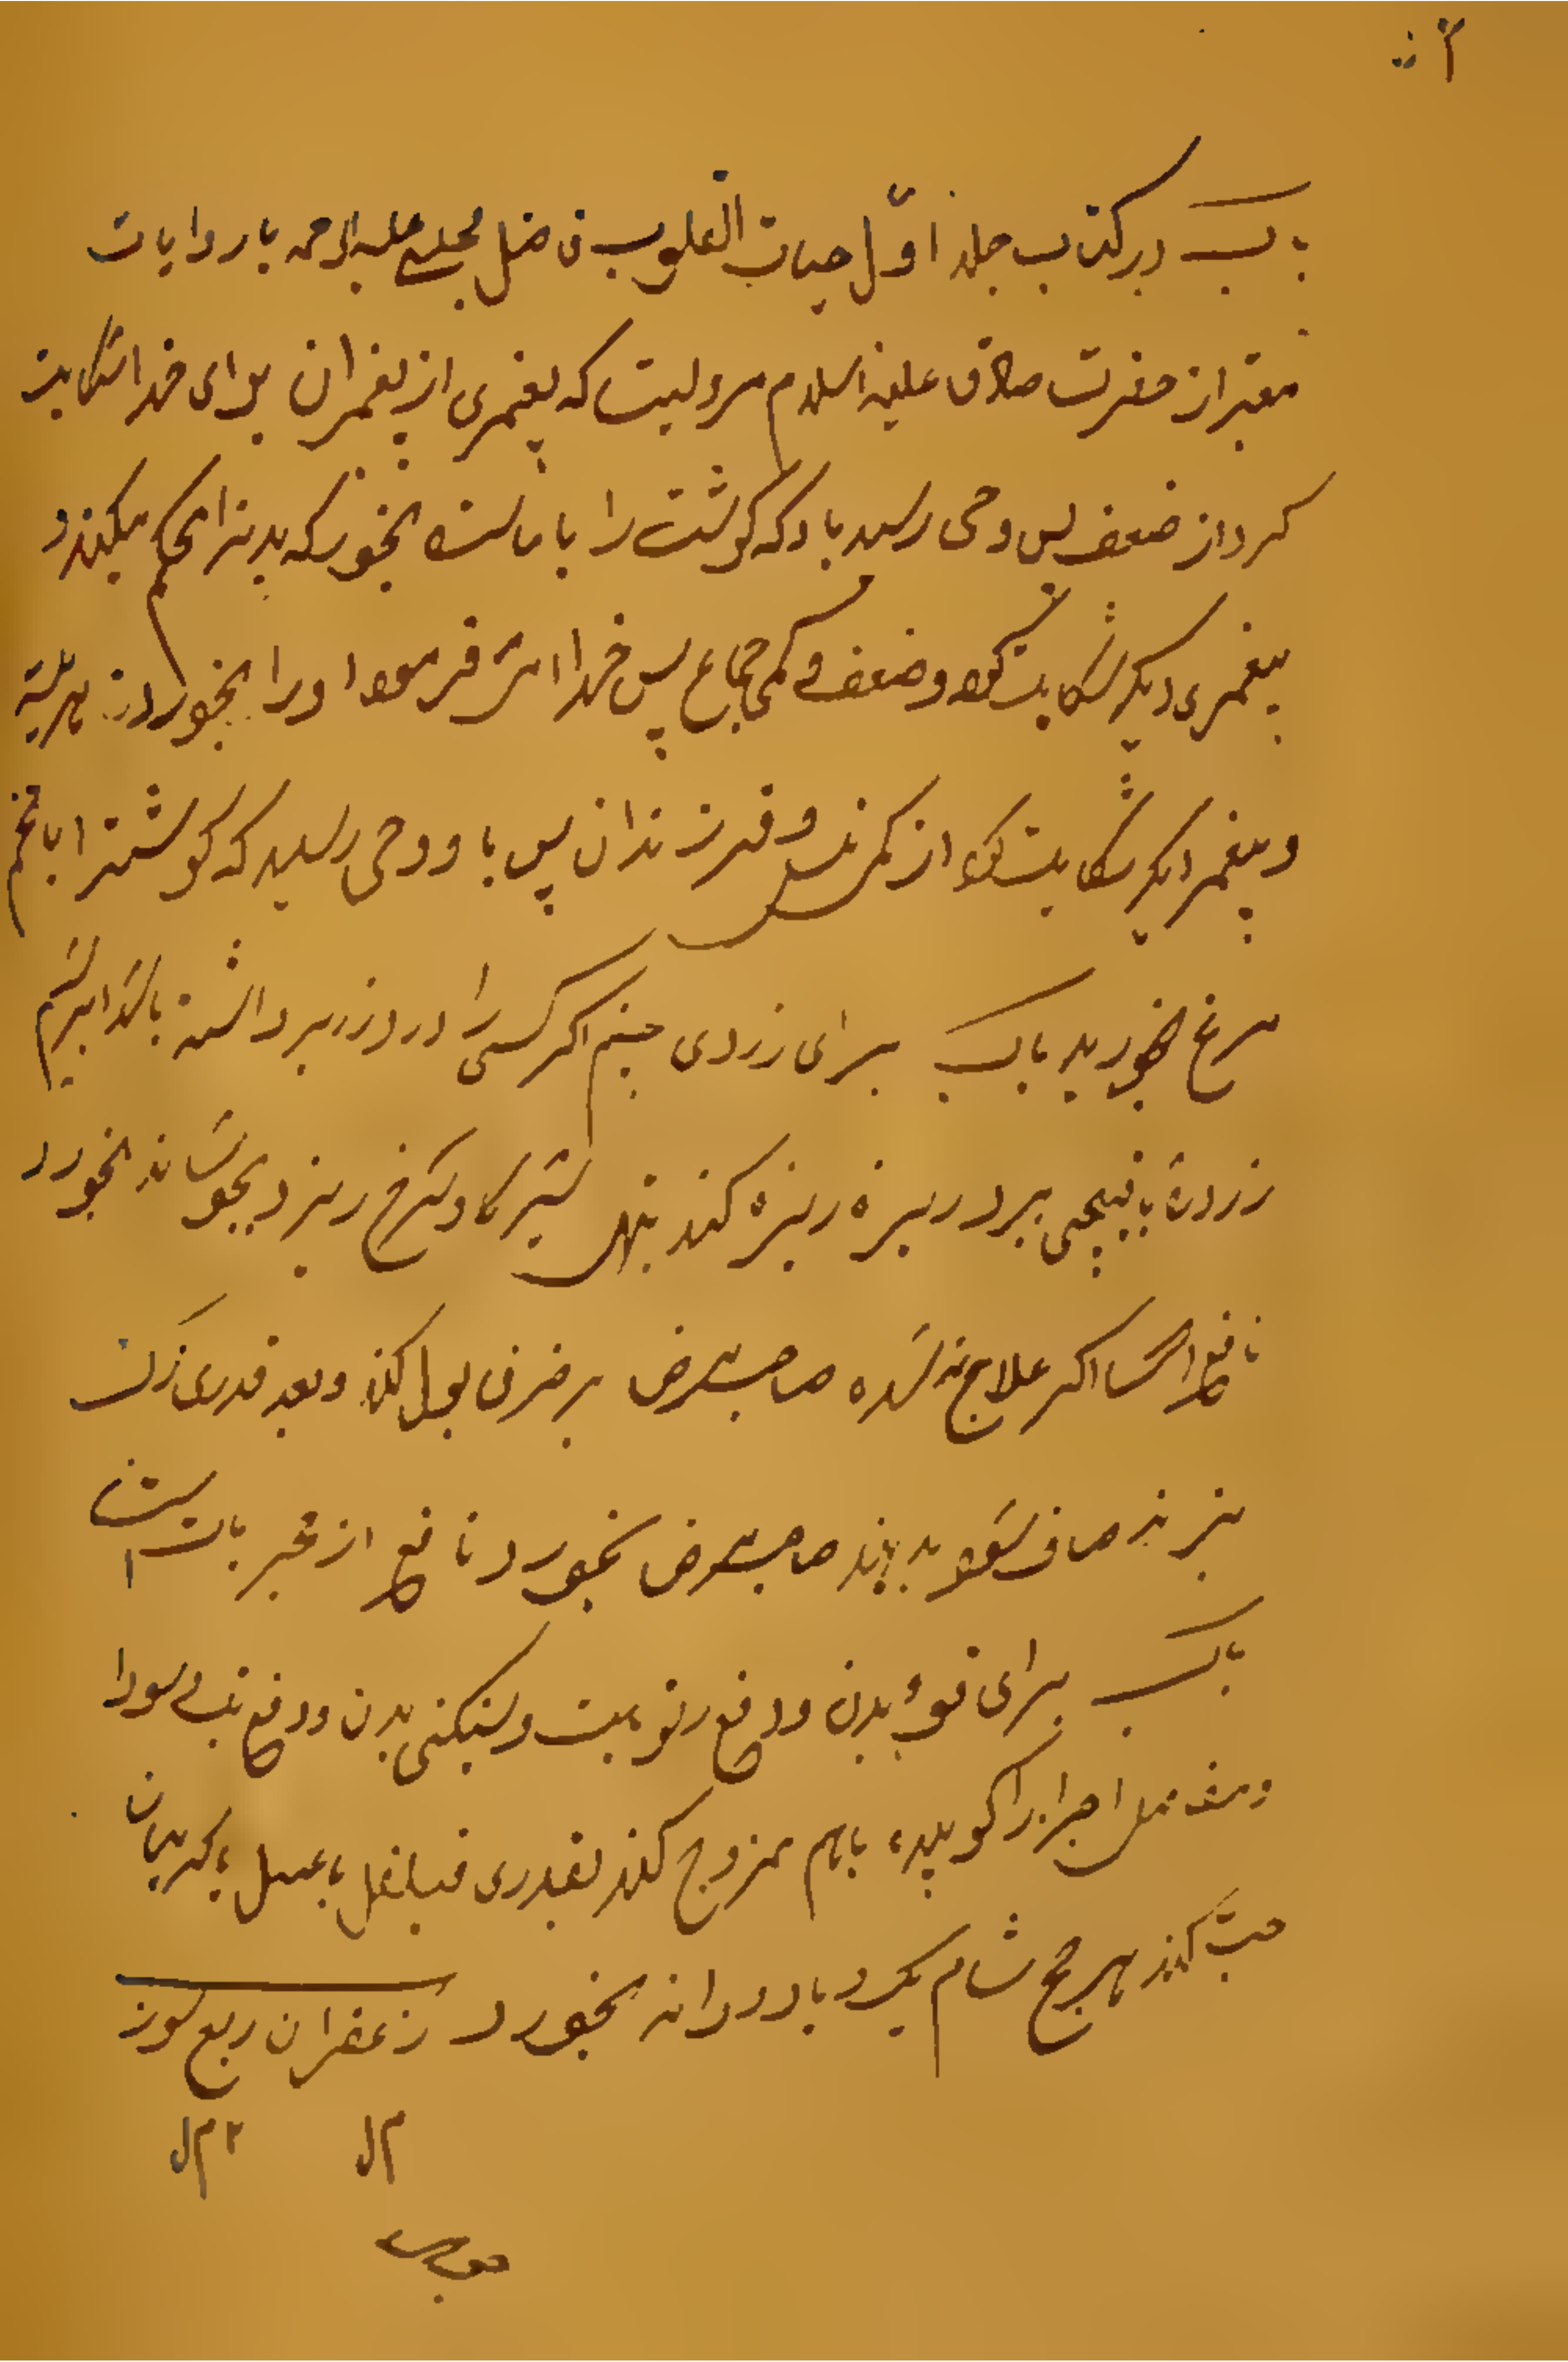 باب در کتاب جلد اوّل حیات القلوب فاضل مجلسی علیه الرحمه با روایات
معتبر از حضرت صادق علیه السلام مرویست که پیغمبری از پیغمبران برای خدا شکایت
کرد از ضعف پس وحی رسید باو که گوشت را با ماست بخور که بدنرا محکم میکند و
پیغمبری دیگر شکایت کرد و ضعف و کمی جماع پس خدا امرش فرمود او را بخوردن هریسه
و پیغمبر دیگر شکایت کرد از کمی نسل و فرزندان پس باو وحی رسید که گوشترا با تخم
مرغ بخورید باب برای زردی چشم اگر کسی را در روز برداشته باشد ابریشم
زرد را با قیچی ببرد ریزه ریزه کند شیر کاو سرخ ریزد بجوشاند بخورد
نافع است اگر علاج نشده صاحب مرض بر ظرفی بول کند و بعد قدری
بریزند صاف شود بدهند صاحب مرض بخورد نافع از مجربات است
باب برای قوۀ بدن و دفع رطوبت و سنگینی بدن و دفع تب و سودا
اجزا را کوبیده باهم ممزوج کند بقدری با عسل
حبّ کند هر صبح شام یک و یا دو دانه بخورد زعفران ربع
م‌ل ۲ م‌ل